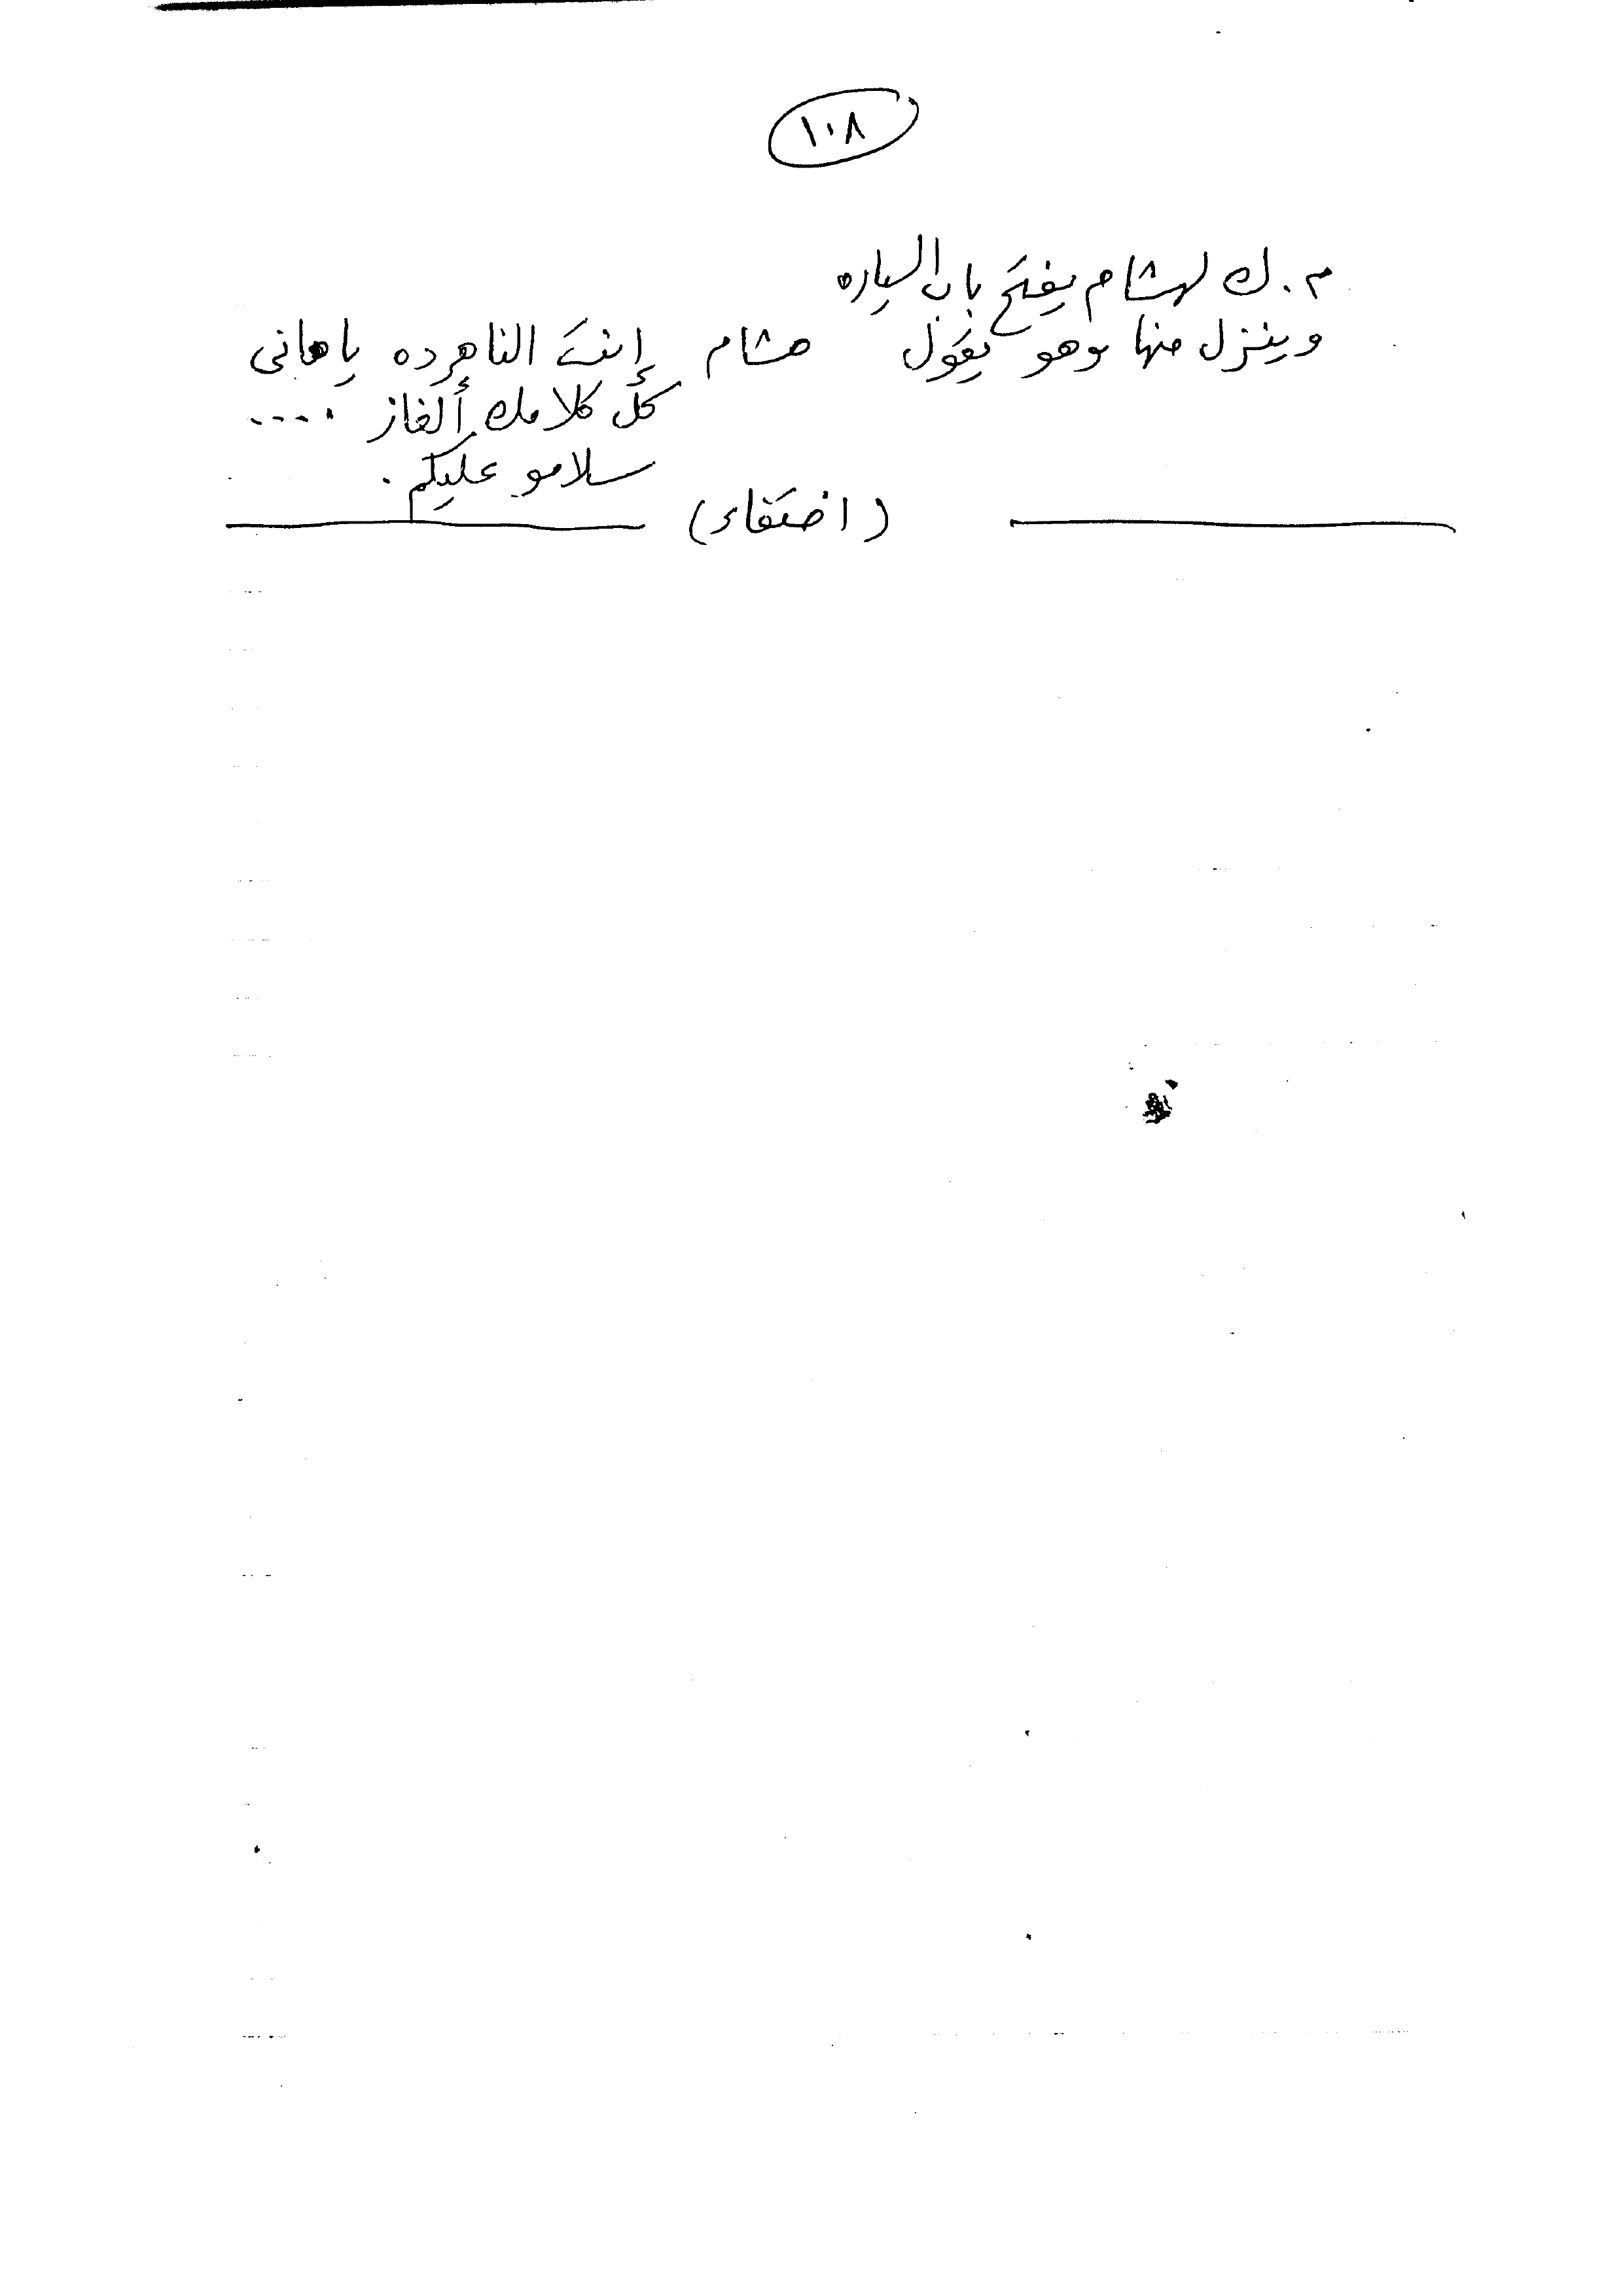 ١٠٨
م. ك لهشام يفتح باب السياره
وينزل منها وهو يقول هشام إنت الناهرده ياهانى
كل كلامك ألغاز ....
سلامو عليكم .
(اختفاء)